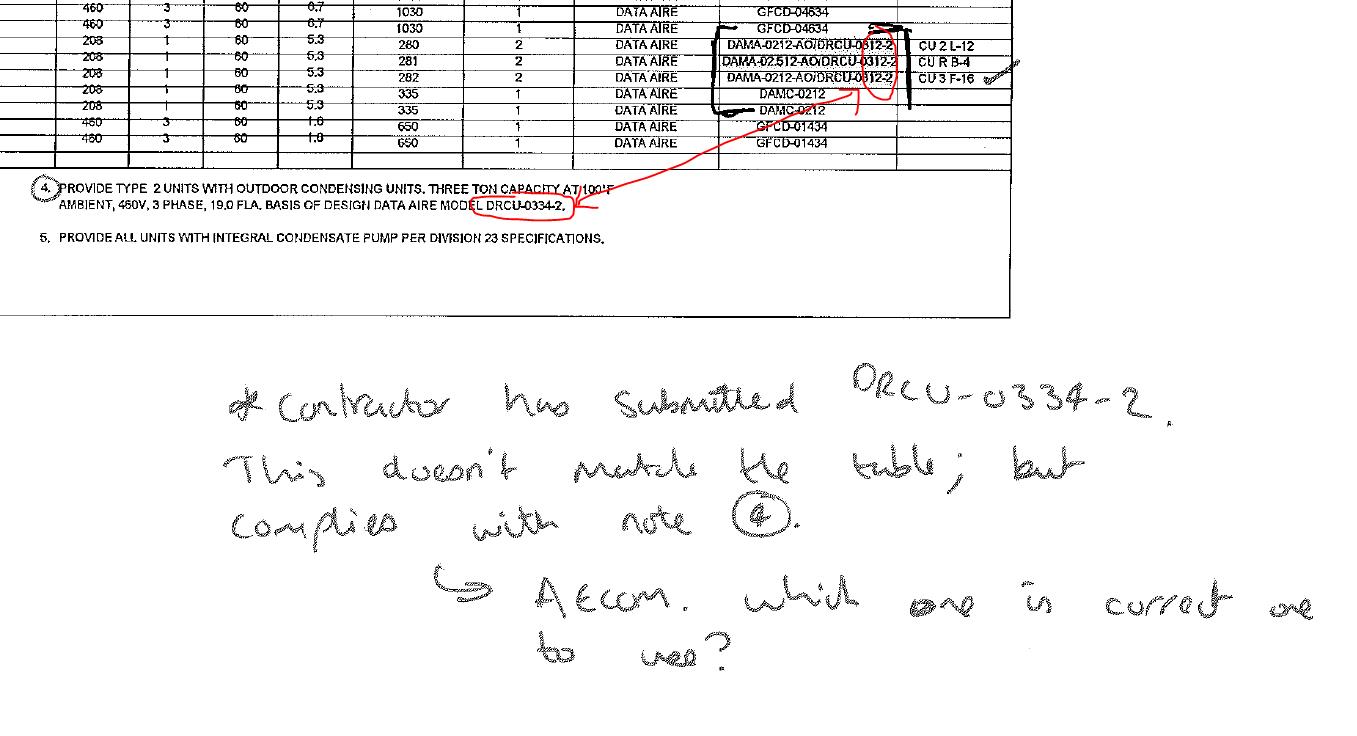 460 3 60 6.7 1030 1 DATA AIRE GFCD-04634
460 3 60 6.7 1030 1 DATA AIRE GFCD-04634
208 1 60 5.3 280 2 DATA AIRE DAMA-0212-AO/DRCU-0312-2 CU 2 L-12
208 1 60 5.3 281 2 DATA AIRE DAMA-02.512-AO/DRCU-0312-2 CU R B-4
208 1 60 5.3 282 2 DATA AIRE DAMA-0212-AO/DRCU-0312-2 CU 3 F-16
208 1 60 5.3 335 1 DATA AIRE DAMC-0212
208 1 60 5.3 335 1 DATA AIRE DAMC-0212
460 3 60 1.8 650 1 DATA AIRE GFCD-01434
460 3 60 1.8 650 1 DATA AIRE GFCD-01434
4. PROVIDE TYPE 2 UNITS WITH OUTDOOR CONDENSING UNITS. THREE TON CAPACITY AT 100°F
AMBIENT, 460V, 3 PHASE, 19.0 FLA. BASIS OF DESIGN DATA AIRE MODEL DRCU-0334-2.
5. PROVIDE ALL UNITS WITH INTEGRAL CONDENSATE PUMP PER DIVISION 23 SPECIFICATIONS.
* Contractor has submitted DRCU-0334-2.
This doesn't match the table; but
complies with note 4.
↳ AECOM. which one is correct one
to use?